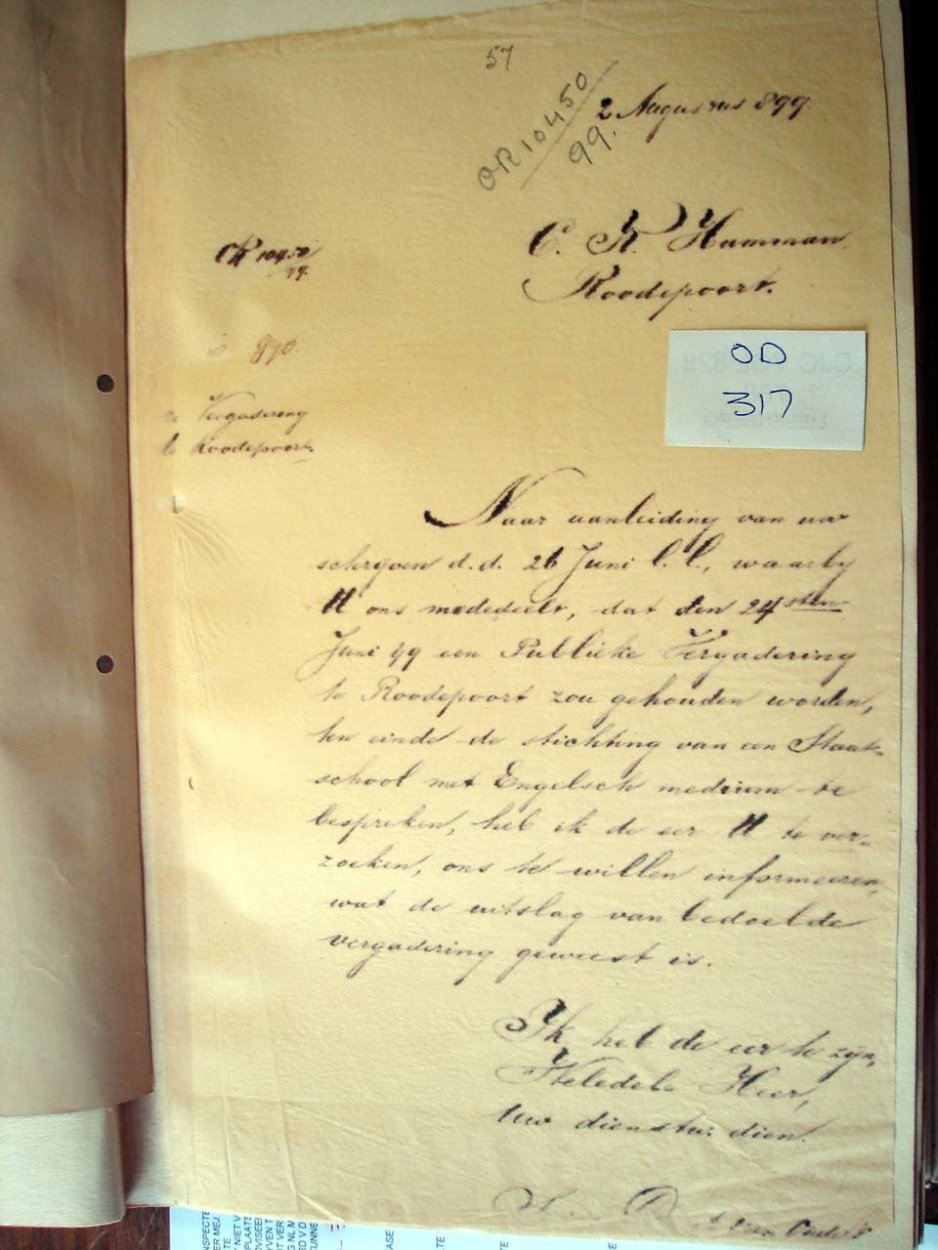 57
OR 10450/99.
2 Augustus 899.
OR 10450/99.
C. K. Hamman
Roodepoort.
890
OD
317
Vergadering
te Roodepoort.
Naar aanleiding van uw
schrijven d.d. 26 Juni l.l., waarby
U ons mededeelt, dat den 24sten
Juni 99 een Publieke Vergadering
te Roodepoort zou gehouden worden,
ten einde de stichting van een Staats-
school met Engelsch medium te
bespreken, heb ik de eer U te ver-
zoeken, ons te willen informeeren,
wat de uitslag van bedoelde
vergadering geweest is.
Ik heb de eer te zijn,
WelEdele Heer,
Uw dienstw. dien.